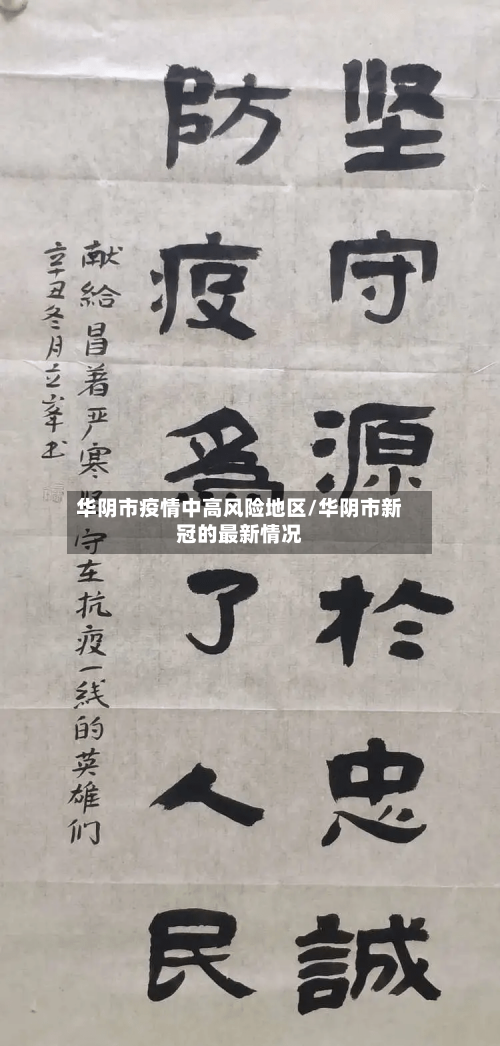 坚守源於忠誠
防疫為了人民
献給冒着严寒坚守在抗疫一线的英雄们
辛丑冬月立峯书
华阴市疫情中高风险地区/华阴市新
冠的最新情况